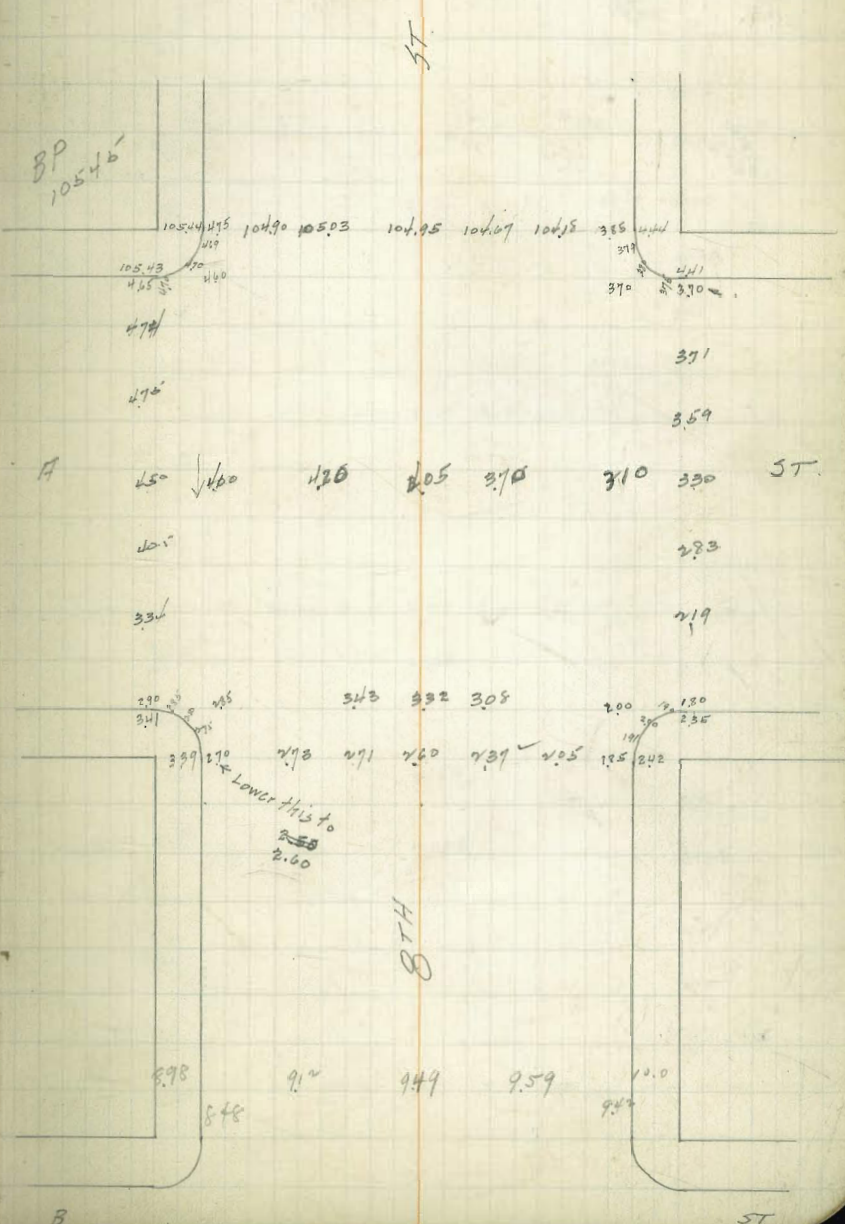 ST.
BP
10545
105.44 4.75 104.90 105.03 104.95 104.67 104.18 3.85 4.44
4.69 3.79
105.43 4.70 4.60 4.41
4.65 3.70 3.70
4.74
3.71
4.75
3.59
A 4.50 4.60 4.20 4.05 3.70 3.10 3.30 ST.
2.83
3.34 2.19
2.90 2.85 3.43 3.32 3.08 2.00 1.80
3.41 2.35
3.39 2.70 2.73 2.71 2.60 2.39 2.05 1.85 2.42
Lower this to
2.50
2.60
8TH
8.98 9.12 9.49 9.59 10.0
8.48 9.42
B ST